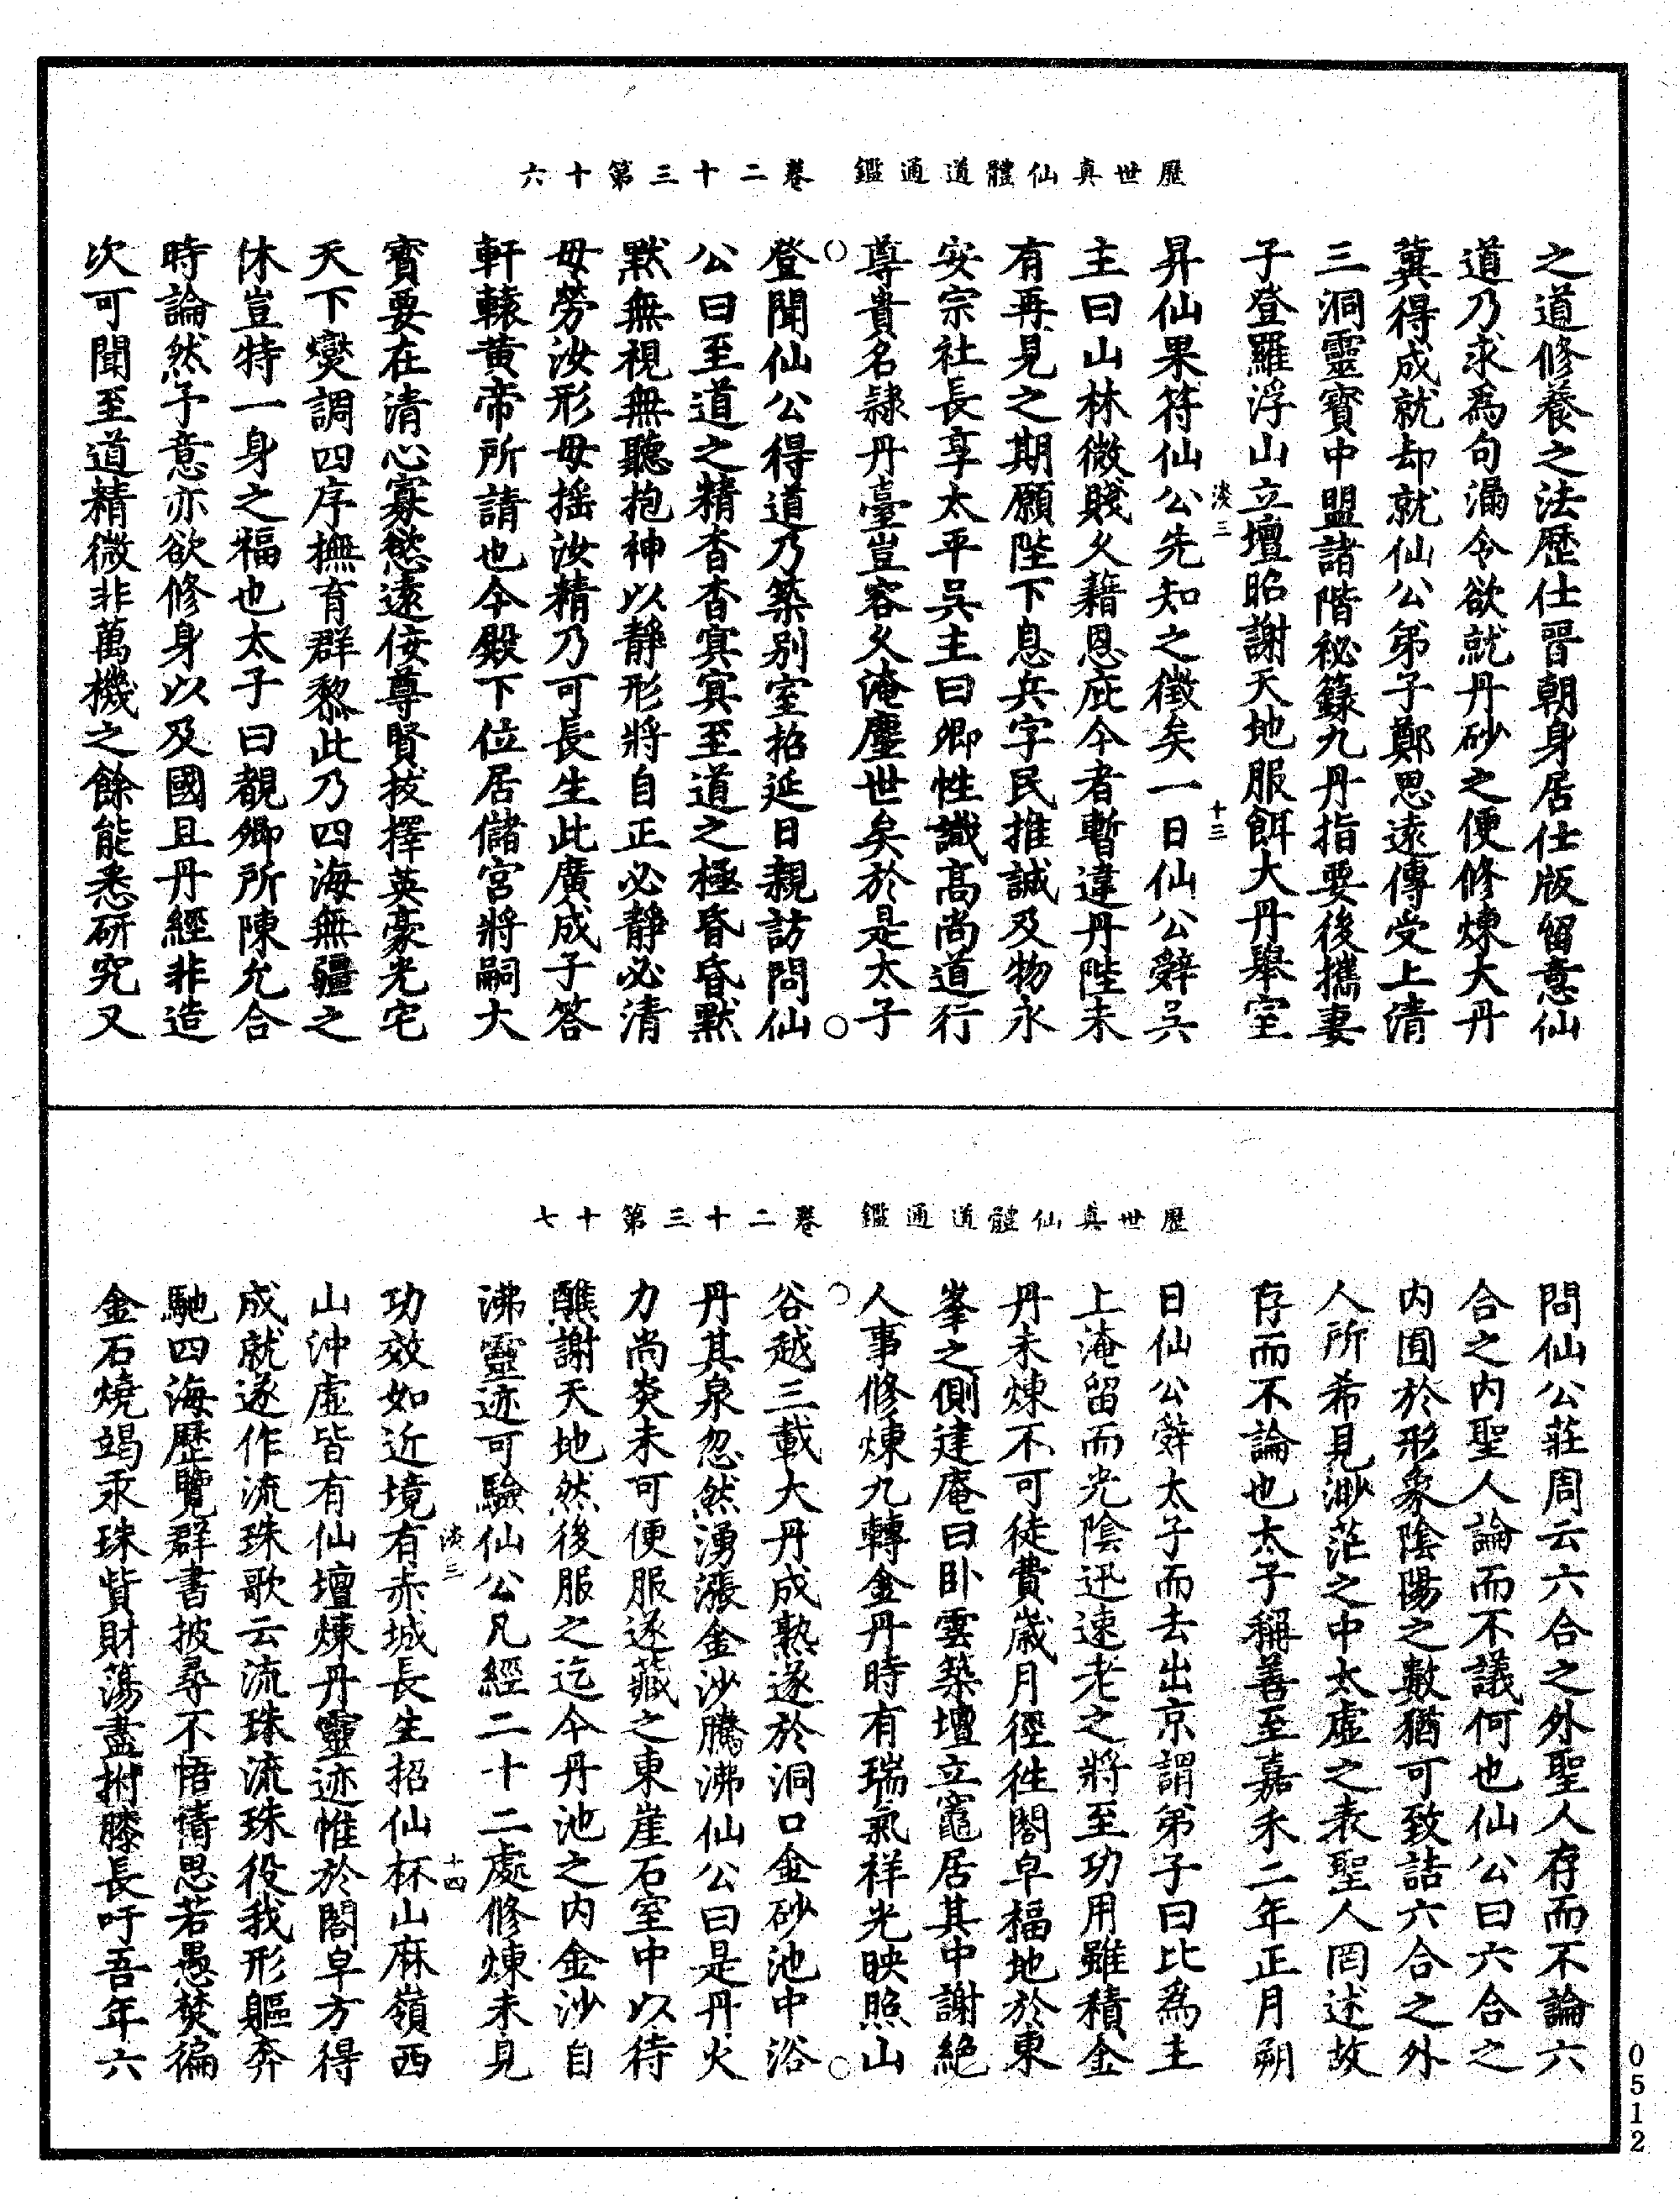 歷世真仙體道通鑑　卷二十三第十六
之道修養之法歷仕晉朝身居仕版留意仙
道乃求為句漏令欲就丹砂之便修煉大丹
冀得成就却就仙公弟子鄭思遠傳受上清
三洞靈寶中盟諸階秘籙九丹指要後攜妻
子登羅浮山立壇昭謝天地服餌大丹舉室
淡三　十三
昇仙果符仙公先知之徵矣一日仙公辭吳
主曰山林微賤久藉恩庇今者暫違丹陛未
有再見之期願陛下息兵字民推誠及物永
安宗社長享太平吳主曰卿性識高尚道行
尊貴名隸丹臺豈容久淹塵世矣於是太子
登聞仙公得道乃築別室招延日親訪問仙
公曰至道之精杳杳冥冥至道之極昏昏默
默無視無聽抱神以靜形將自正必靜必清
毋勞汝形毋搖汝精乃可長生此廣成子答
軒轅黃帝所請也今殿下位居儲宮將嗣大
寶要在清心寡慾遠佞尊賢拔擇英豪光宅
天下燮調四序撫育群黎此乃四海無疆之
休豈特一身之福也太子曰覩卿所陳允合
時論然予意亦欲修身以及國且丹經非造
次可聞至道精微非萬機之餘能悉研究又
歷世真仙體道通鑑　卷二十三第十七
問仙公莊周云六合之外聖人存而不論六
合之內聖人論而不議何也仙公曰六合之
內囿於形象陰陽之數猶可致詰六合之外
人所希見渺茫之中太虛之表聖人罔述故
存而不論也太子稱善至嘉禾二年正月朔
日仙公辭太子而去出京謂弟子曰比為主
上淹留而光陰迅速老之將至功用雖積金
丹未煉不可徒費歲月徑往閤皁福地於東
峯之側建庵曰卧雲築壇立竈居其中謝絕
人事修煉九轉金丹時有瑞氣祥光映照山
谷越三載大丹成熟遂於洞口金砂池中浴
丹其泉忽然湧漲金沙騰沸仙公曰是丹火
力尚炎未可便服遂藏之東崖石室中以待
醮謝天地然後服之迄今丹池之內金沙自
沸靈迹可驗仙公凡經二十二處修煉未見
淡三　十四
功效如近境有赤城長生招仙杯山麻嶺西
山沖虛皆有仙壇煉丹靈迹惟於閤皁方得
成就遂作流珠歌云流珠流珠役我形軀奔
馳四海歷覽群書披尋不悟情思若愚焚徧
金石燒竭汞珠貲財蕩盡拊膝長吁吾年六
0512